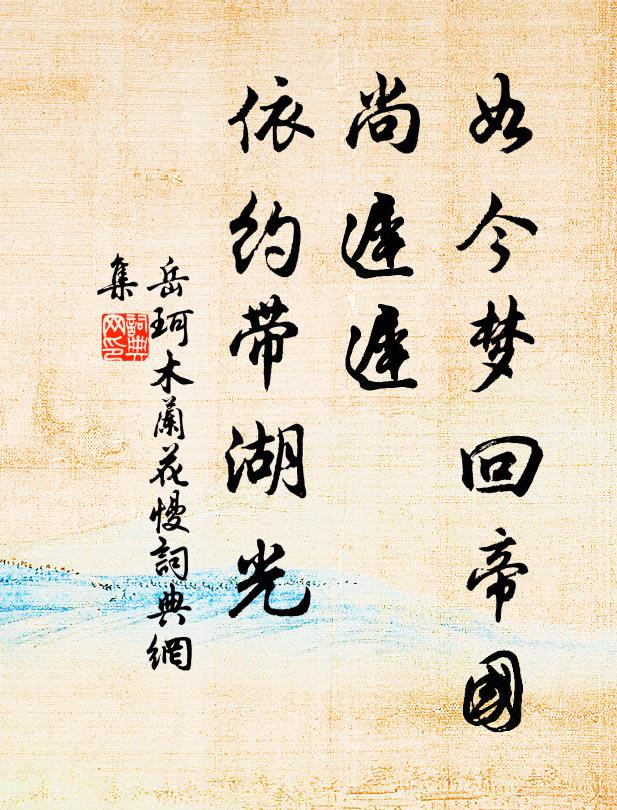 如今梦回帝國
尚遲遲
依约带湖光
岳珂木蘭花慢詞典網
集
詞典
网印